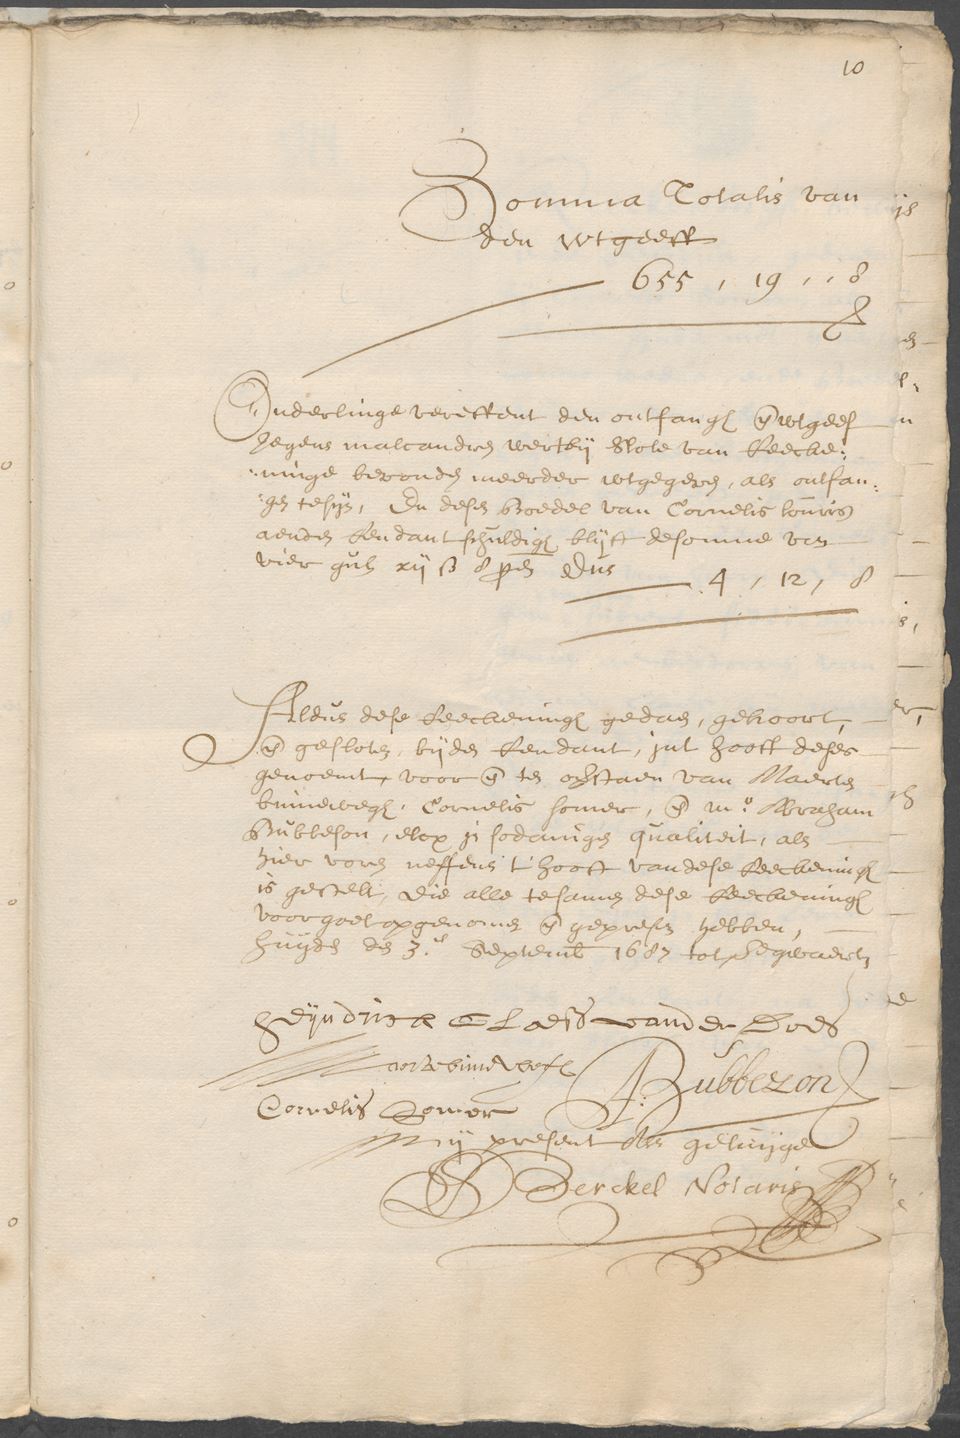 10
Somma Totalis van
den uytgeeff
655 , 19 , , 8
Onderlinge vereffent den ontfangh en uytgeeff
jegens malcandren wert bij slote van Reeke-
-ninge bevonden meerder uytgegeven, als ontfan-
-gen te sijn, En desen Boedel van Cornelis louris
aenden Rendant schuldigh blijft de somme van
vier guld xij ß 8 pen Dus
4 , 12 , 8
Aldus dese Reeckeningh gedaen, gehoort,
en gesloten, bijden Rendant, int hooft deses
genoemt, voor en ten overstaen van Maerten
binnewegh, Cornelis somer, en mr. Abraham
Bubbeson, elcx in sodanige qualiteit, als
hier voren neffens 't hooft van dese Reeckeningh
is gestelt, Die alle tesamen dese Reeckeningh
voor goet opgenomen en gepresen hebben,
huijden den 3en Septemb 1687 tot Segwaert
Heijndrick Claess vander Does
binnewegh
A: Bubbezon
Cornelis Somer
Mij present als getuijge
Berckel Notaris